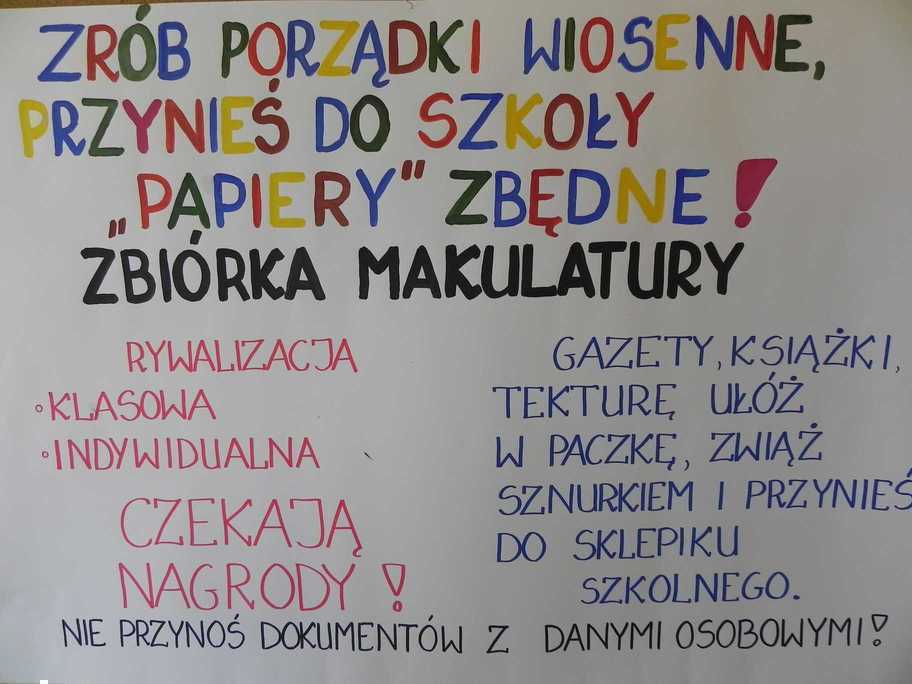 ZRÓB PORZĄDKI WIOSENNE,
PRZYNIEŚ DO SZKOŁY
„PAPIERY" ZBĘDNE!
ZBIÓRKA MAKULATURY
RYWALIZACJA
◦KLASOWA
◦INDYWIDUALNA
CZEKAJĄ
NAGRODY!
GAZETY, KSIĄŻKI,
TEKTURĘ UŁÓŻ
W PACZKĘ, ZWIĄŻ
SZNURKIEM I PRZYNIEŚ
DO SKLEPIKU
SZKOLNEGO.
NIE PRZYNOŚ DOKUMENTÓW Z DANYMI OSOBOWYMI!